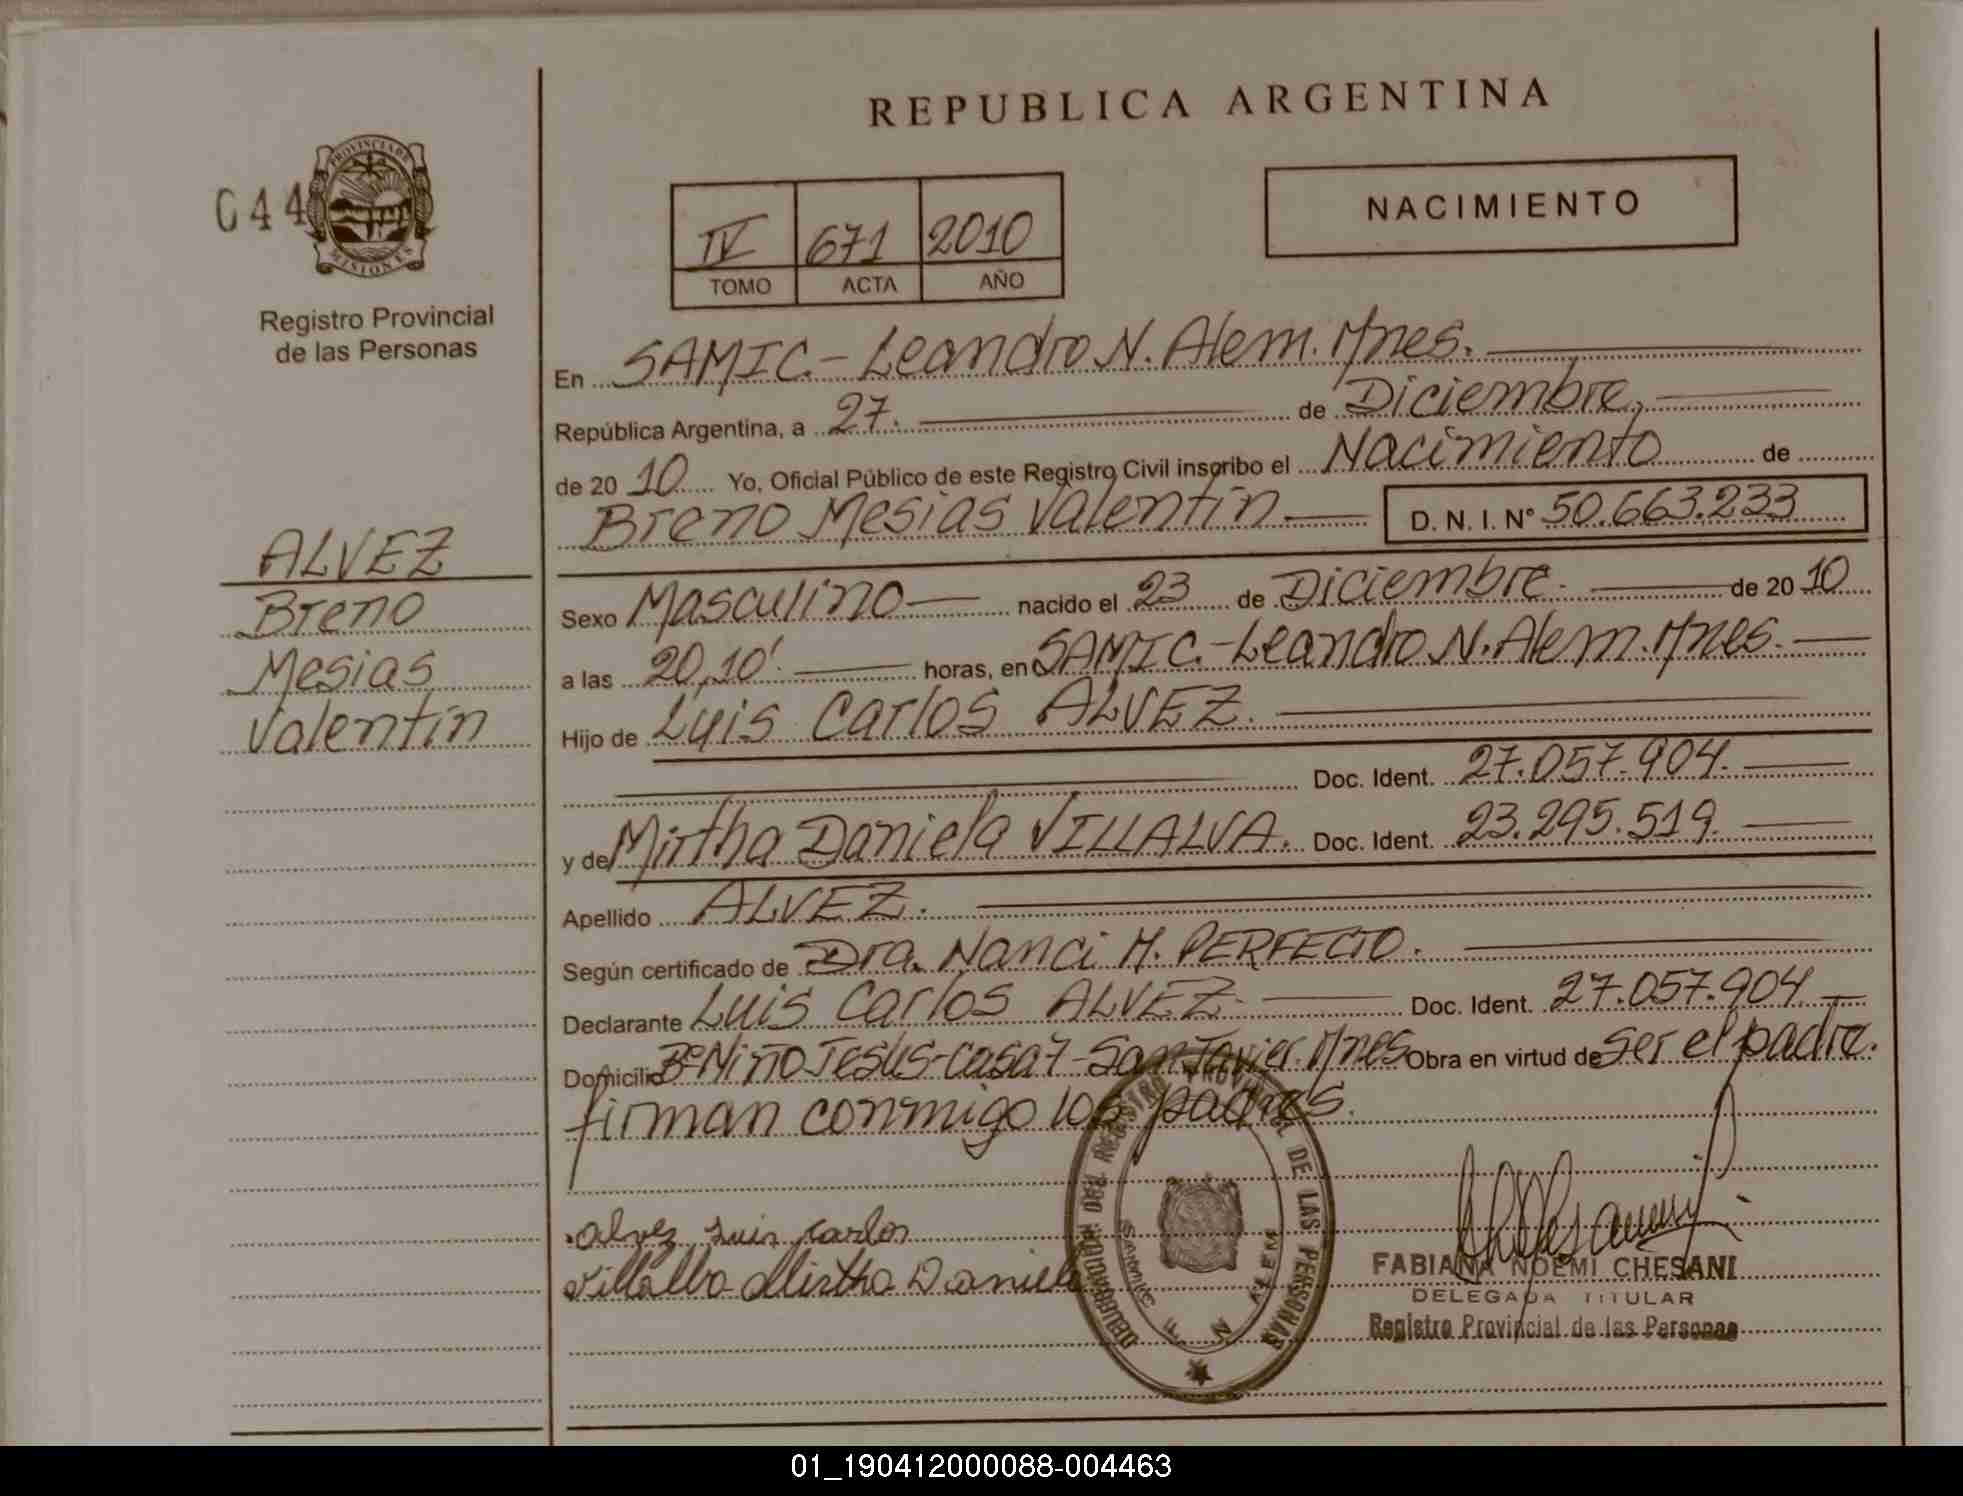 REPUBLICA ARGENTINA
044
PROVINCIA DE
MISIONES
Registro Provincial
de las Personas
IV 671 2010
TOMO ACTA AÑO
NACIMIENTO
En SAMIC.- Leandro N. Alem. Mnes.
República Argentina, a 27. de Diciembre,
de 20 10 Yo, Oficial Público de este Registro Civil inscribo el Nacimiento de
Breno Mesias Valentín D. N. I. N° 50.663.233
ALVEZ
Breno
Mesias
Valentín
Sexo Masculino nacido el 23 de Diciembre. de 20 10
a las 20,10'. horas, en SAMIC.-Leandro N. Alem. Mnes.
Hijo de Luis Carlos ALVEZ.
Doc. Ident. 27.057.904.
y de Mirtha Daniela VILLALVA. Doc. Ident. 23.295.519.
Apellido ALVEZ.
Según certificado de Dra. Nanci M. PERFECTO.
Declarante Luis Carlos ALVEZ. Doc. Ident. 27.057.904.
Domicilio B° Niño Jesus-casa 7-San Javier. Mnes Obra en virtud de ser el padre.
firman conmigo los padres.
Alvez Luis Carlos
Villalba Mirtha Daniela
DELEGACION DEL REGISTRO PROVINCIAL DE LAS PERSONAS
SAMIC
N ALEM
FABIANA NOEMI CHESANI
DELEGADA TITULAR
Registro Provincial de las Personas
01_190412000088-004463